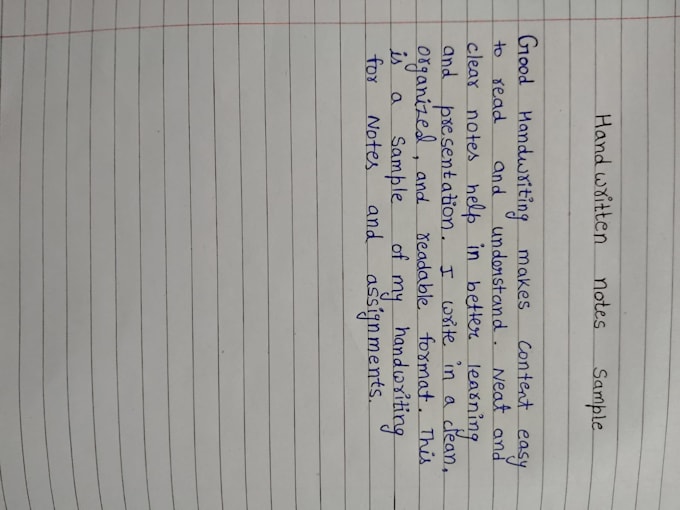 Handwritten notes Sample
Good Handwriting makes content easy
to read and understand. Neat and
clear notes help in better learning
and presentation. I write in a clean,
organized, and readable format. This
is a Sample of my handwriting
for Notes and assignments.